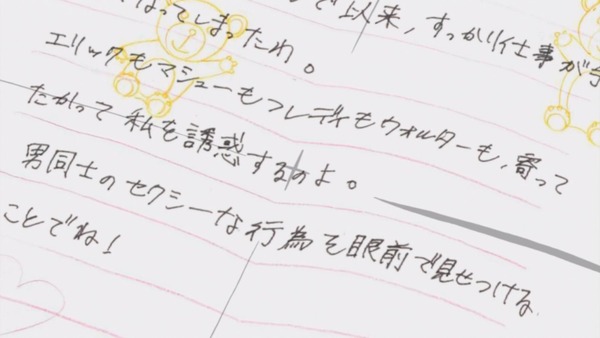 で以来、すっかり仕事が手
なってしまったわ。
エリックもマシューもフレディもウォルターも、寄って
たかって私を誘惑するのよ。
男同士のセクシーな行為を眼前で見せつける
ことでね!